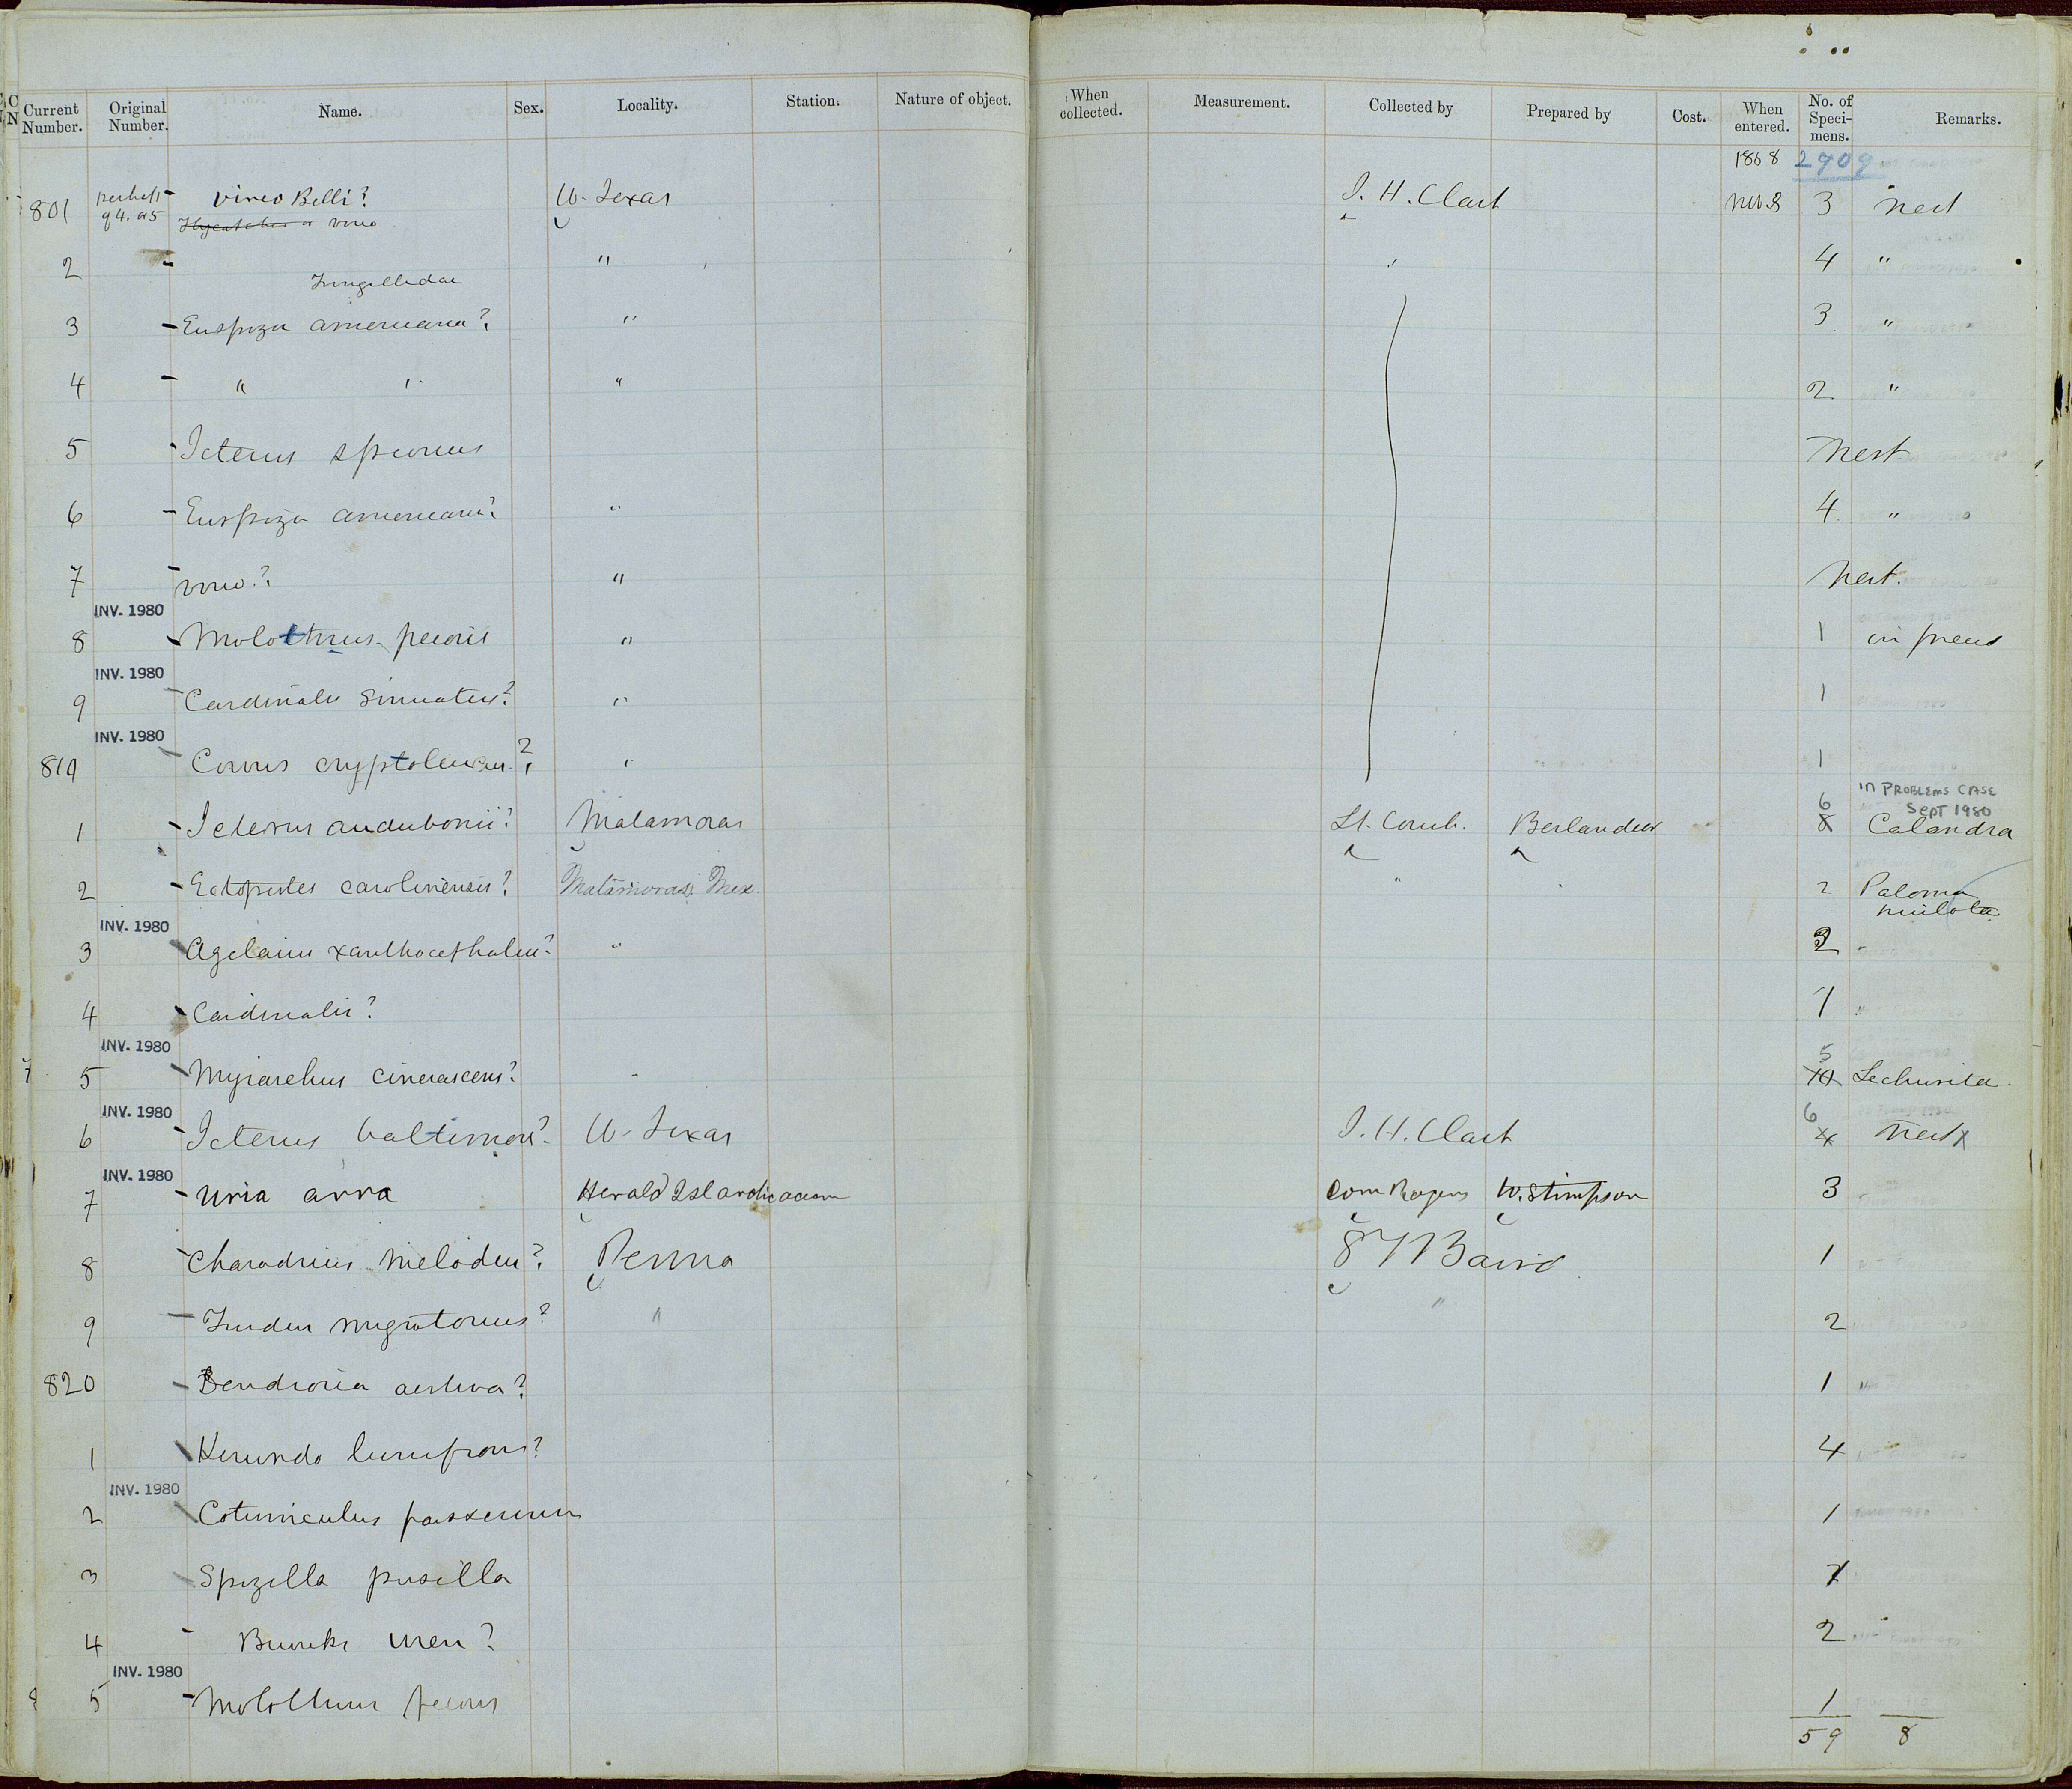 Current Number. Original Number. Name. Sex. Locality. Station. Nature of object. When collected. Measurement. Collected by Prepared by Cost. When entered. No. of Speci-mens. Remarks.
1868 2909
801 perhaps 94. or 5 Vireo Belli? W. Texas J. H. Clark 3 nest
Flycatcher or vireo
2 " 4 "
Fringillidae
3 Euspiza americana? " 3 "
4 " " " 2 "
5 Icterus spurius nest
6 Euspiza americana? " 4 "
7 vireo? " nest.
INV. 1980
8 Molothrus pecoris " 1
INV. 1980
9 Cardinalis sinuatus? " 1
INV. 1980
810 Corvus cryptoleucus? " 1
IN PROBLEMS CASE
SEPT 1980
1 Icterus audubonii? Matamoras Lt. Couch. Berlandier 6 8 Calandra
2 Ectopistes carolinensis? Matamoras Mex. " 2 Paloma
INV. 1980
3 Agelaius xanthocephalus? "
4 Cardinalis? 1
INV. 1980
5 Myiarchus cinerascens? 5 10 Lechusita.
INV. 1980
6 Icterus baltimore? W. Texas J. H. Clark 6 4 nest
INV. 1980
7 Uria arra Herald Isl Arctic ocean Com Rogers W. Stimpson 3
8 Charadrius melodus? Penna S F Baird 1
9 Turdus migratorius? " " 2
820 Dendroica aestiva? 1
1 Hirundo lunifrons? 4
INV. 1980
2 Coturniculus passerinus 1
3 Spizella pusilla
4 Bewicks wren? 2
INV. 1980
5 Molothrus pecoris 1
59 8